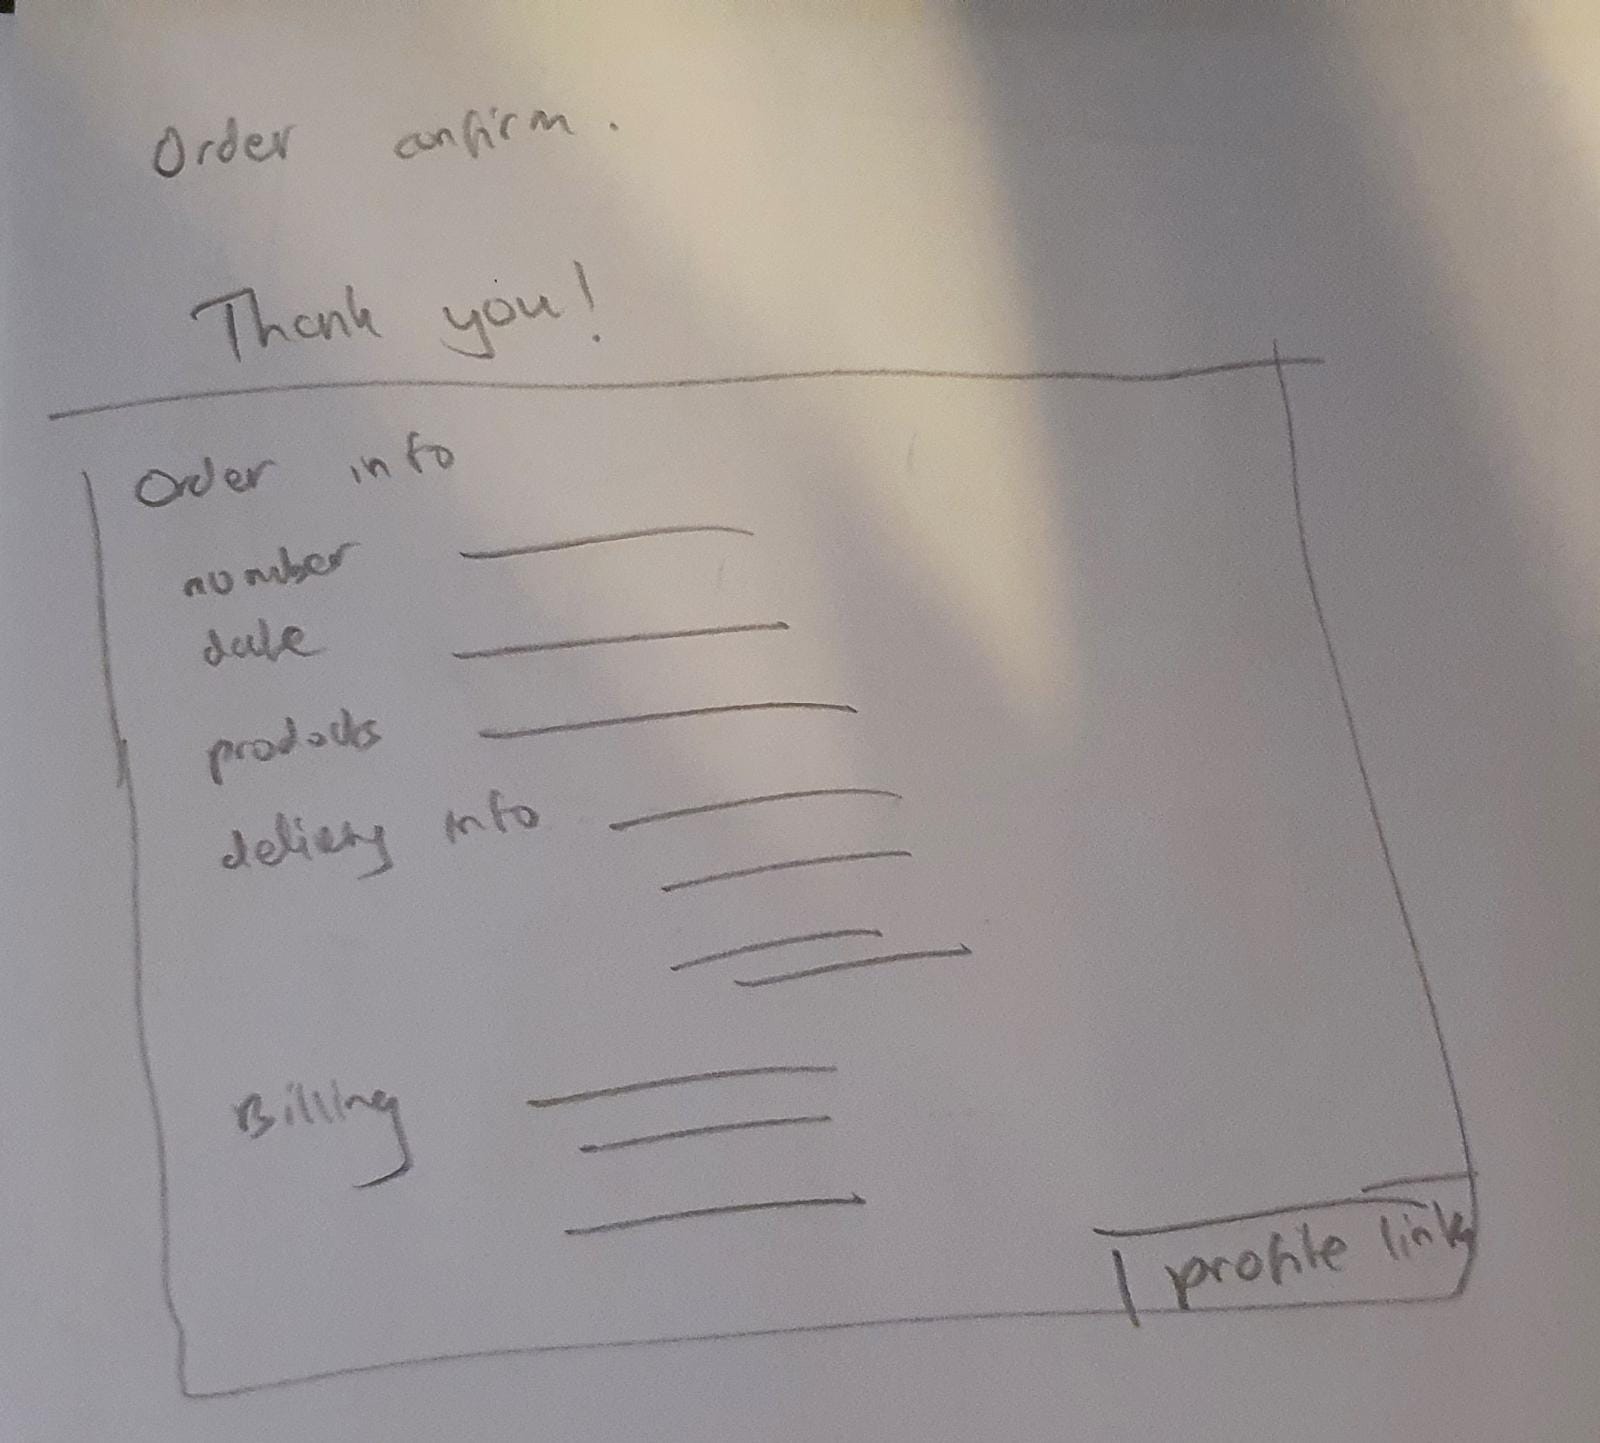 Order confirm.
Thank you!
Order info
number
date
products
delivery info
Billing
profile link